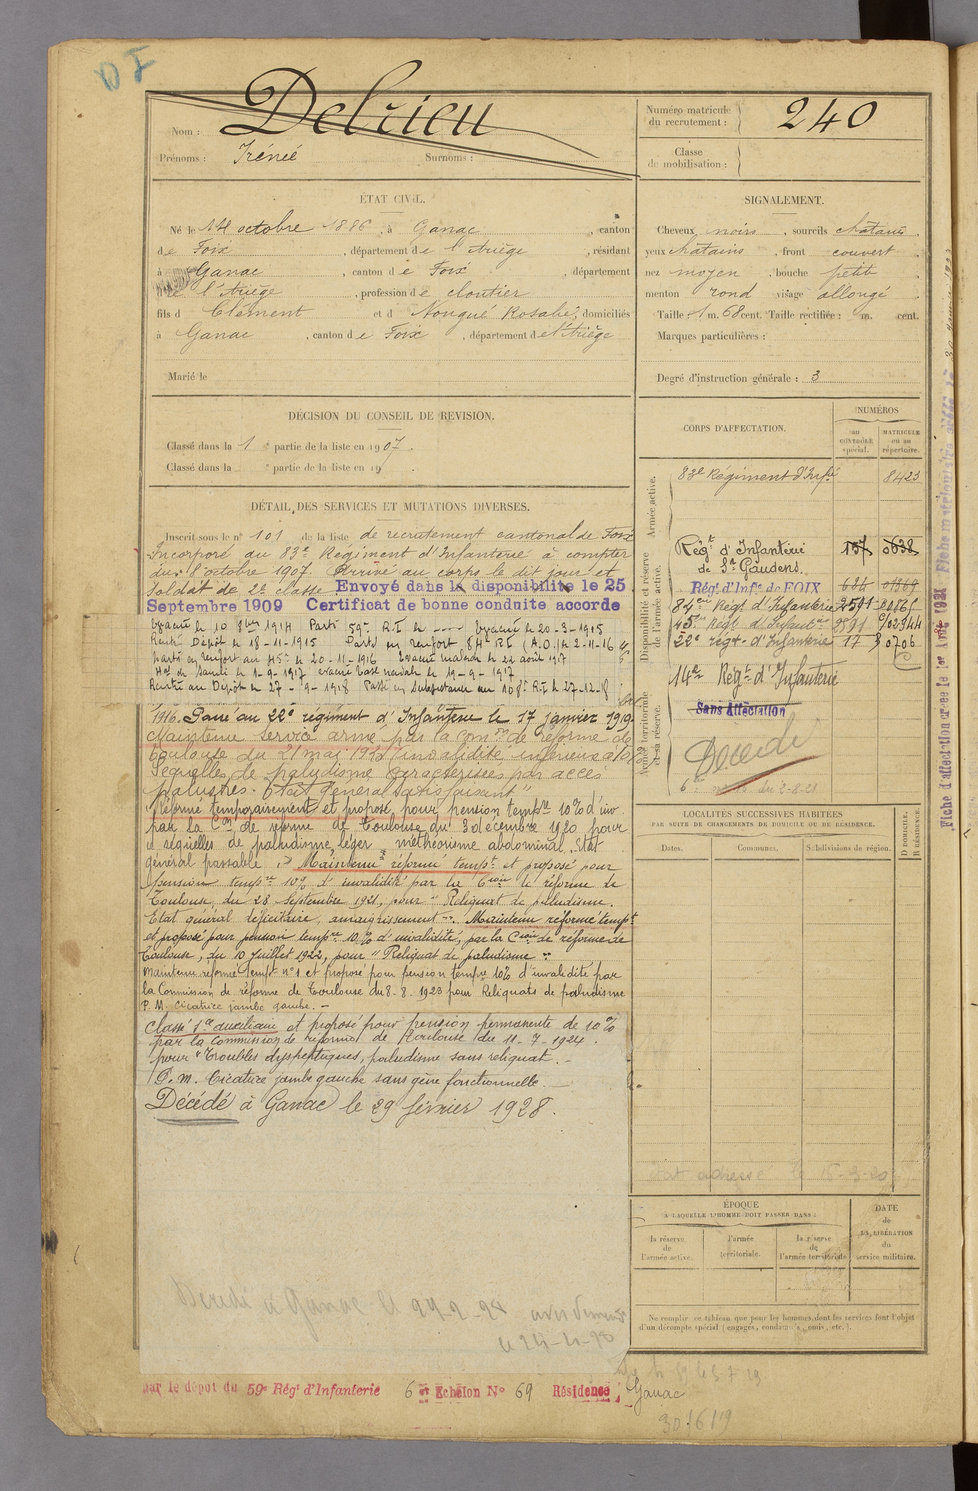 DF
Nom : Delrieu
Prénoms : Irénée Surnoms :
Numéro matricule du recrutement : 240
Classe de mobilisation :
ÉTAT CIVIL.
Né le 14 octobre 1886, à Ganac, canton
de Foix, département de l'Ariège, résidant
à Ganac, canton de Foix, département
de l'Ariège, profession de cloutier
fils de Clément et d Rosalie, domiciliés
à Ganac, canton de Foix, département de l'Ariège
Marié le
SIGNALEMENT.
Cheveux noirs, sourcils châtains,
yeux châtains, front couvert
nez moyen, bouche petite
menton rond visage allongé
Taille 1 m. 68 cent. Taille rectifiée : m. cent.
Marques particulières :
Degré d'instruction générale : 3
DÉCISION DU CONSEIL DE REVISION.
Classé dans la 1e partie de la liste en 1907.
Classé dans la e partie de la liste en 19
DÉTAIL DES SERVICES ET MUTATIONS DIVERSES.
Inscrit sous le n° 101 de la liste de recrutement cantonal de Foix
Incorporé au 83e Régiment d'Infanterie à compter
du 8 octobre 1907. Arrivé au corps le dit jour et
soldat de 2e classe. Envoyé dans la disponibilité le 25
Septembre 1909 Certificat de bonne conduite accordé
Évacué le 20-3-1915
Rentré Dépôt le 18-11-1915 Parti en renfort 84e RI (A.O.) le 2-11-16
parti en renfort au 45e le 20-11-1916 Évacué malade le 22 août 1917
le 1-9-1917 évacué base navale le 19-9-1917
Rentré au Dépôt le 27-9-1918 Passé en subsistance au 108e R.I. le 27-12-18
1916. Passé au 22e régiment d'Infanterie le 17 janvier 1919
Maintenu service armé par la Con de réforme de
Toulouse du 21 mai 1920 invalidité inférieure à 10%
Séquelles de paludisme caractérisées par accès
palustres. Etat général satisfaisant"
Réformé temporairement et proposé pour pension tempre 10% d'inv.
par la Con de réforme de Toulouse du 3 décembre 1920 pour
séquelles de paludisme, léger météorisme abdominal, état
général passable. Maintenu réformé tempt et proposé pour
pension tempre 10% d'invalidité par la Cion de réforme de
Toulouse, du 28 Septembre 1921, pour "Reliquat de paludisme.
Etat général déficitaire, amaigrissement". Maintenu réformé tempt
et proposé pour pension tempre 10% d'invalidité, par la Cion de réforme de
Toulouse, du 10 Juillet 1922, pour "Reliquat de paludisme"
Maintenu réformé tempt n° 1 et proposé pour pension tempre 10% d'invalidité par
la Commission de réforme de Toulouse du 8-8-1923 pour Reliquats de paludisme
P. M. Cicatrice jambe gauche. -
Classé 1er auxiliaire et proposé pour pension permanente de 10%
par la Commission de réforme de Toulouse du 11-7-1924.
pour "Troubles dyspeptiques, paludisme sans reliquat. -
P. m. Cicatrice jambe gauche sans gêne fonctionnelle
Décédé à Ganac le 29 février 1928.
Décédé à Ganac
par le dépôt du 59e Rég' d'Infanterie 6 Echelon N° 69 Résidence, Ganac
CORPS D'AFFECTATION.
NUMÉROS
au CONTRÔLE spécial.
MATRICULE ou au répertoire.
Armée active.
83e Régiment d'Infie 8423
Disponibilité et réserve de l'armée active.
Régt d'Infanterie de St Gaudens 157
Rég' d'Inf'e de FOIX
84e Régt d'Infanterie
45e Régt d'Infantre
22e régt d'Infanterie 17
Armée territoriale et sa réserve.
14e Régt d'Infanterie
Sans Affectation
Décédé
LOCALITÉS SUCCESSIVES HABITÉES
PAR SUITE DE CHANGEMENTS DE DOMICILE OU DE RÉSIDENCE.
Dates. Communes. Subdivisions de région. D DOMICILE. R RÉSIDENCE.
ÉPOQUE
À LAQUELLE L'HOMME DOIT PASSER DANS :
la réserve de l'armée active.
l'armée territoriale.
la réserve de l'armée territoriale
DATE de LA LIBÉRATION du service militaire.
Ne remplir ce tableau que pour les hommes dont les services font l'objet
d'un décompte spécial (engagés, condamnés, omis, etc.).